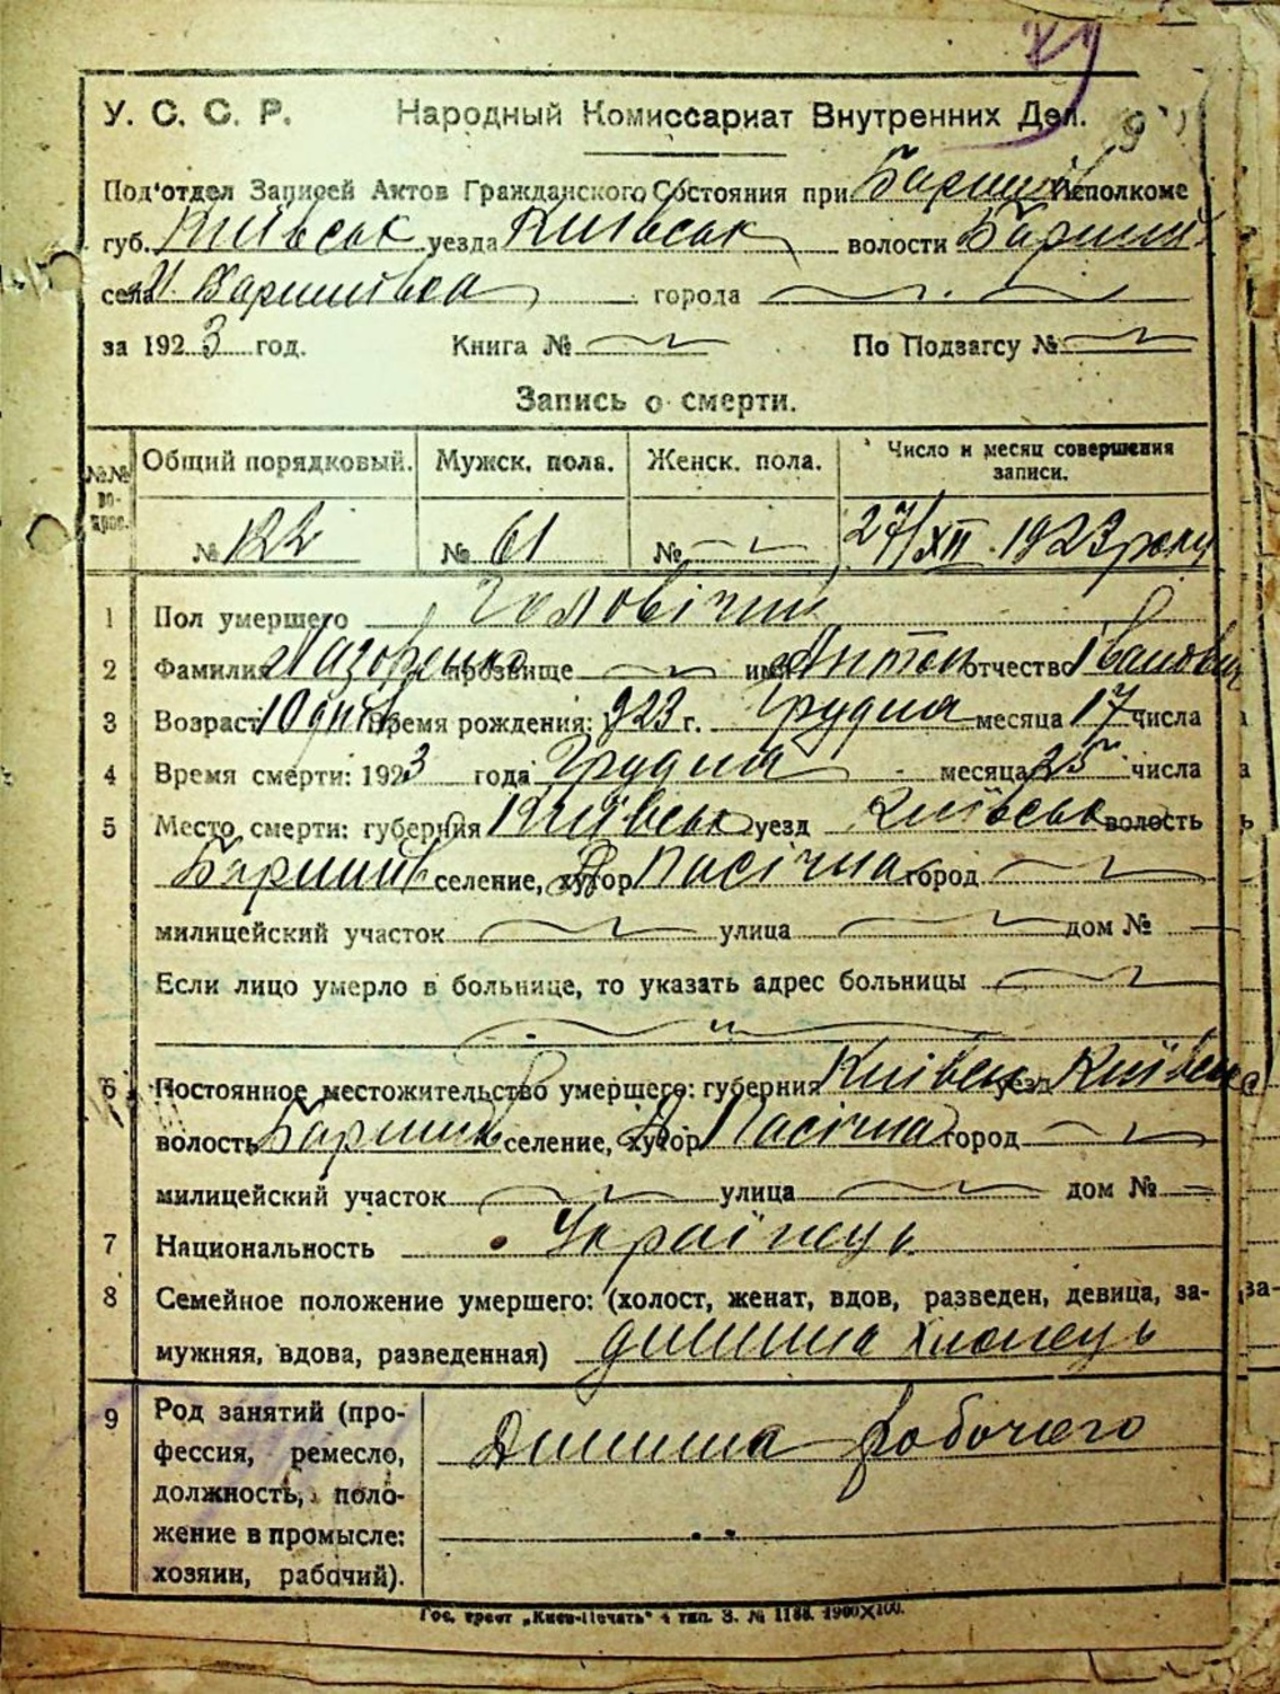 У. С. С. Р. Народный Комиссариат Внутренних Дел.
Под'отдел Записей Актов Гражданского Состояния при Баришів Исполкоме
губ. Київськ уезда Київськ волости Бариш
села М. Баришівка города
за 1923 год. Книга № По Подзагсу №
Запись о смерти.
№№ во- прос. Общий порядковый. Мужск. пола. Женск. пола. Число и месяц совершения записи.
№ 122 № 61 № 27/XII 1923 року
1 Пол умершего Чоловічий
2 Фамилия Лазоренко прозвище имя Антон отчество Іванович
3 Возраст 10 днів Время рождения: 923 г. Грудня месяца 17 числа
4 Время смерти: 1923 года Грудня месяца 25 числа
5 Место смерти: губерния Київськ уезд Київськ волость
Баришів селение, хутор Пасічна город
милицейский участок улица дом №
Если лицо умерло в больнице, то указать адрес больницы
6 Постоянное местожительство умершего: губерния Київськ уезд Київськ
волость Баришів селение, хутор Пасічна город
милицейский участок улица дом №
7 Национальность Українець
8 Семейное положение умершего: (холост, женат, вдов, разведен, девица, за-
мужняя, вдова, разведенная) дитина хлопець
9 Род занятий (про- Дитина робочего
фессия, ремесло,
должность, поло-
жение в промысле:
хозяин, рабочий).
Гос. трест „Киев-Печать" 4 тип. З. № 1188. 1900X100.